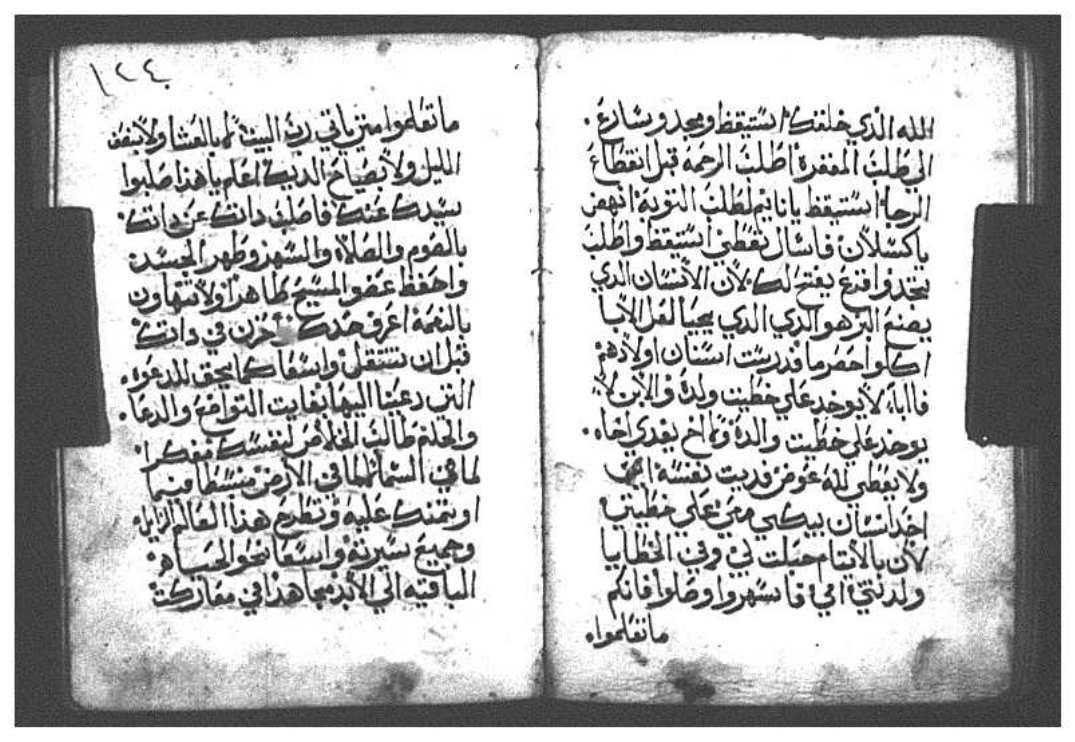 الله الذي خلقك استيقظ ومجد وسارع
الي طلب المغفرة اطلب الرحمة قبل انقطاع
الرجا استيقظ يا نايم لطلب التوبة انهض
يا كسلان فاسال تعطي استيقظ واطلب
تجد واقرع يفتح لك لان الانسان الذي
يصنع البر هو الذي يحيا لعل الابا
اكلوا حصرما فدرست اسنان اولادهم
فالاباء لا يوخد علي خطيت ولده والابن لا
يوخد علي خطيت والده ولا اخ يفدي اخاه
ولا يعطي لله عوض فديت نفسه
احد انسان يبكي معي علي خطيتي
لان بالاتام حبلت بي وفي الخطايا
ولدتني امي فاسهروا وصلوا فانكم
ما تعلموا
١٢٤
ما تعلموا متي ياتي رب البيت بالعشا ولا بنصف
الليل ولا بصياح الديك اعلم يا هذا صلبوا
سيدك عنك فاصلب داتك عن داتك
بالصوم والصلاة والسهر وطهر الجسد
واحفظ عضو المسيح طاهرا ولا تتهاون
بالنعمة اعرف حدك احزن في داتك
قبل ان تنتقل واسعا كما يحق للدعوة
التي دعينا اليها بغايت التواضع والدعا
والحلم طالب الخلاص لنفسك مفكرا
لما في السما لا لما في الارض منبسطا فيما
اويتمنك عليه وتطرح هذا العالم الزايل
وجميع سيرته واسعا نحو الحياه
الباقيه الي الابد مجاهدا في معاركت